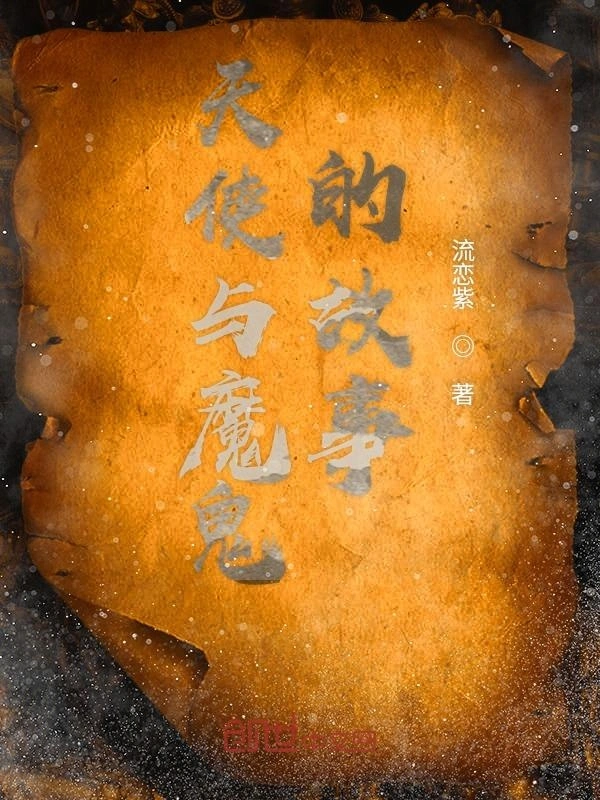 天使与魔鬼
的故事
流恋紫 ◎ 著